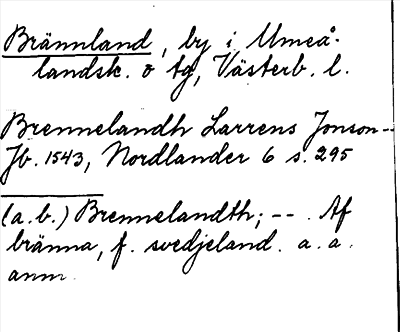 Brännland, by i Umeå-
landsk. o tg, Västerb. l.
Brennelandh Larrens Jonson --
Jb. 1543, Nordlander 6 s. 295
(a.b.) Brennelandth; -- . Af
bränna, f. svedjeland. a. a.
anm.